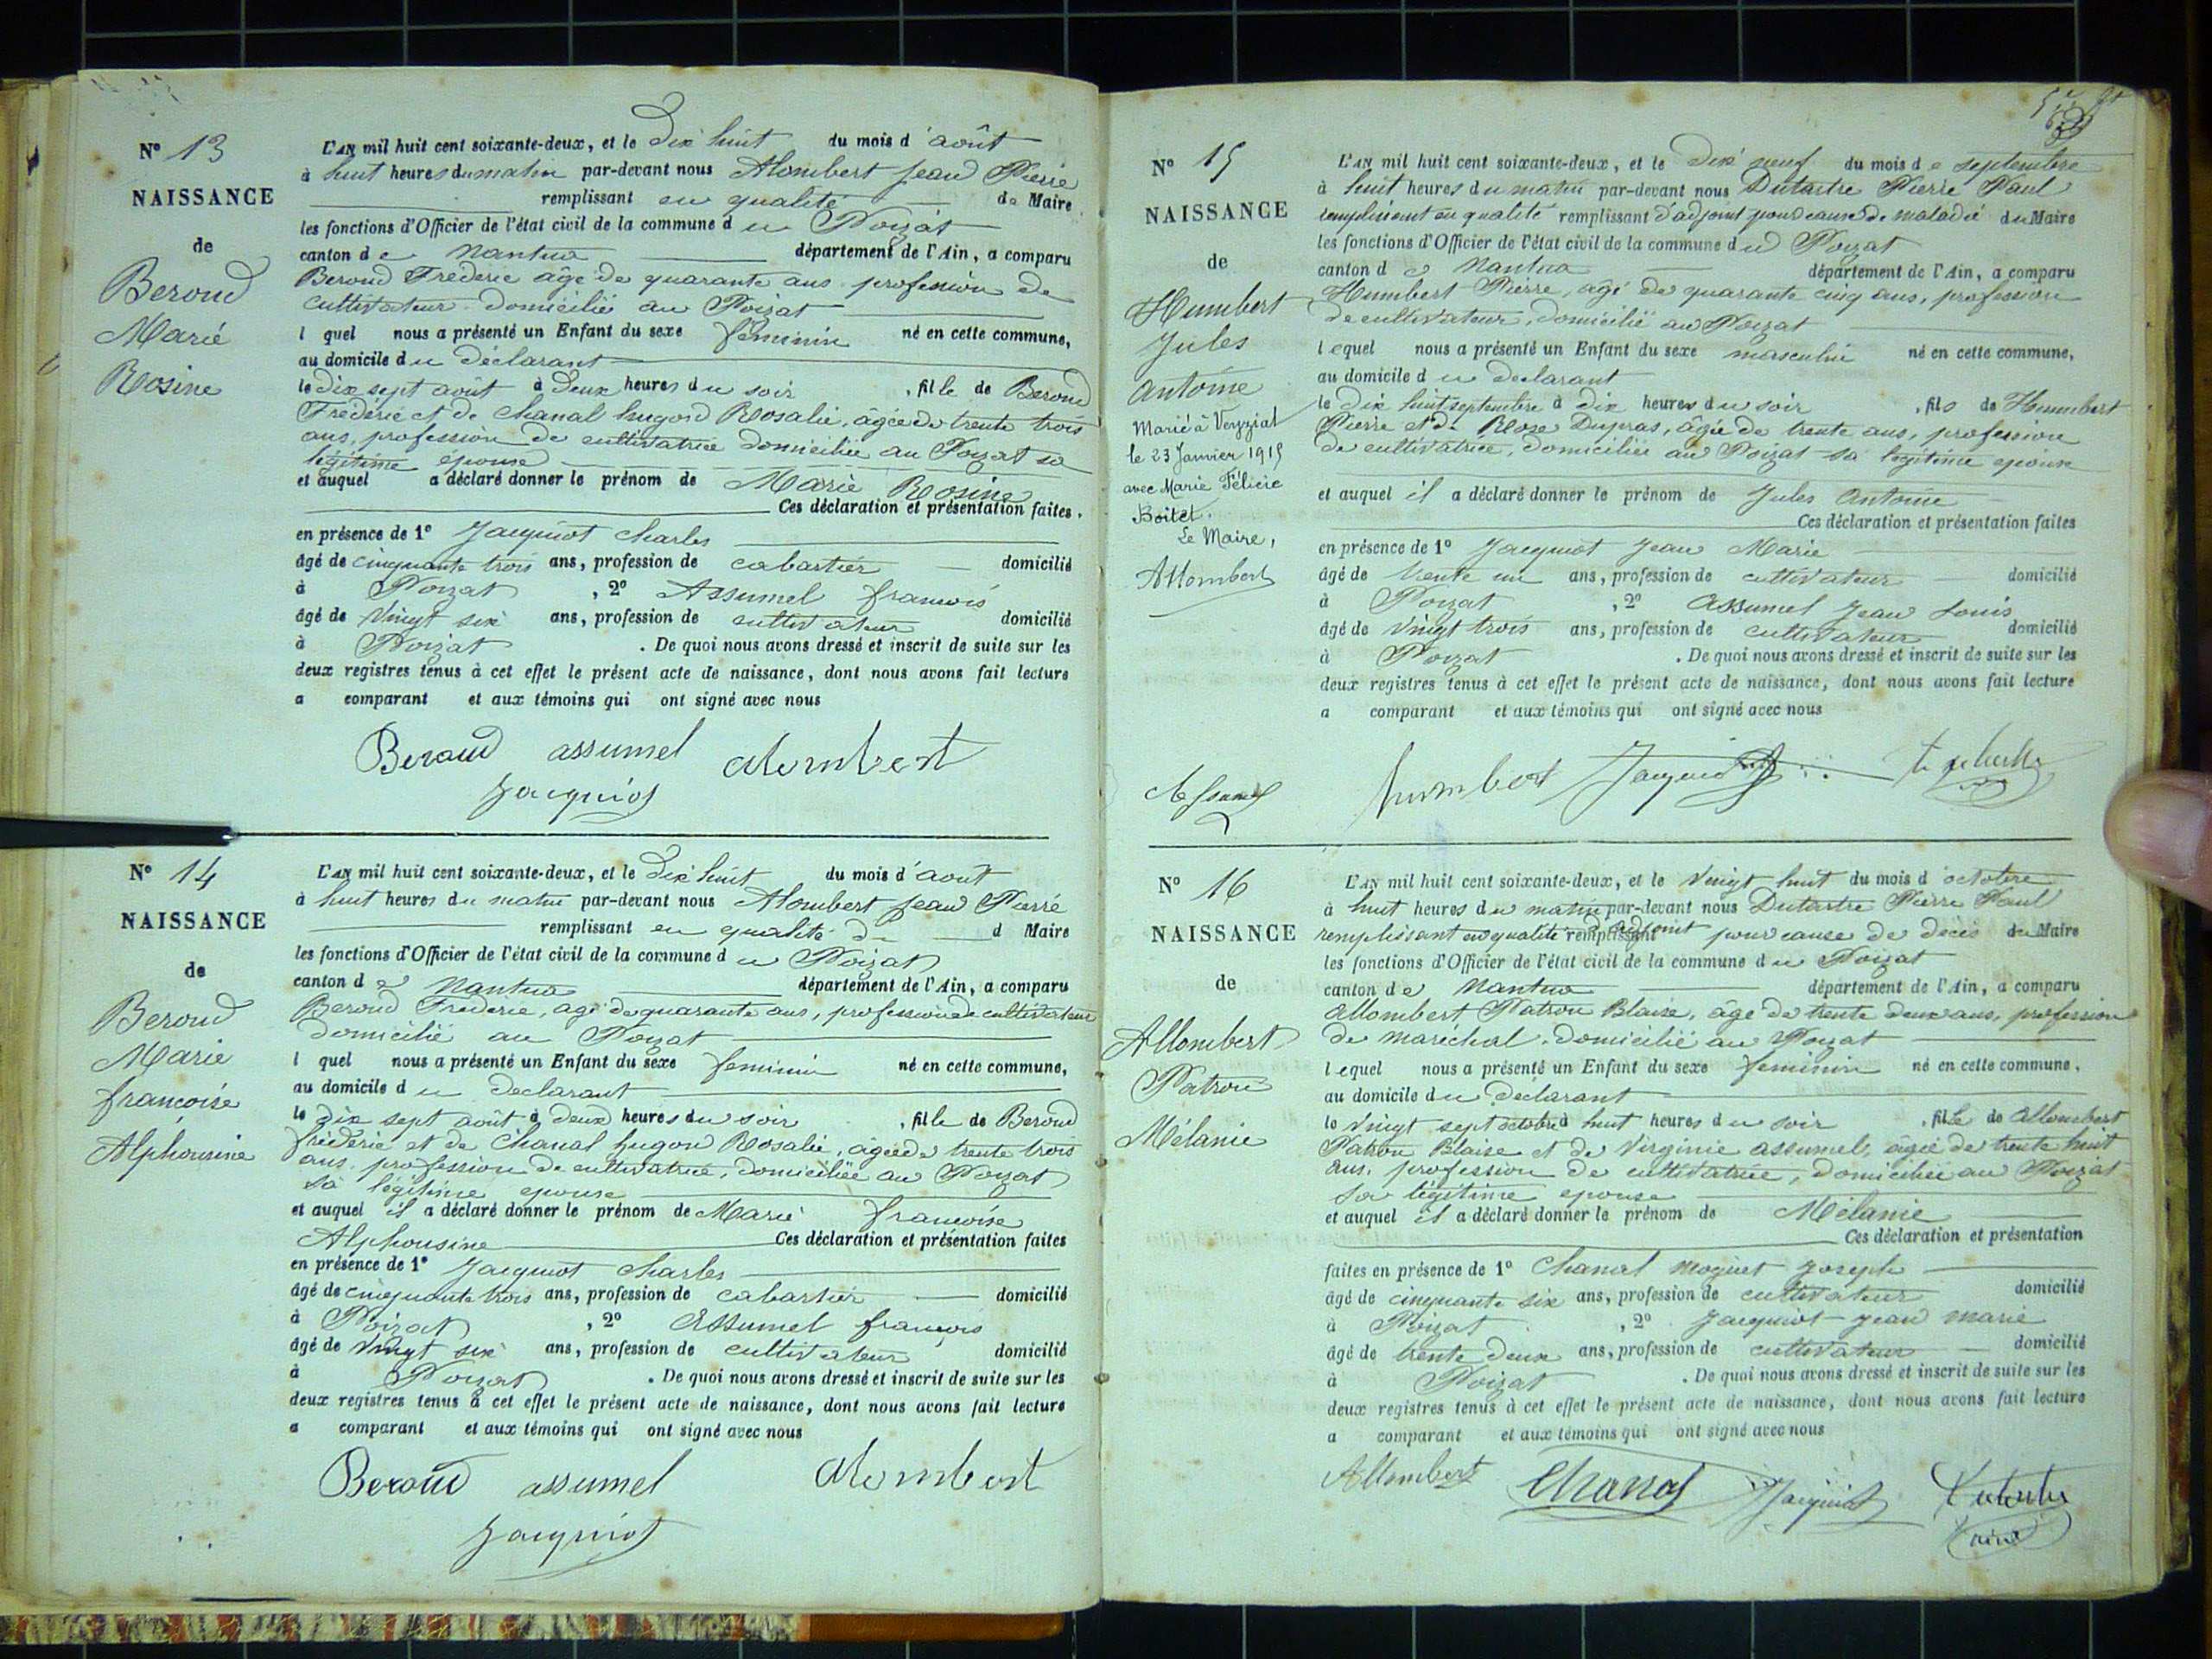 N° 13
NAISSANCE
de
Beroud
Marie
Rosine
L'AN mil huit cent soixante-deux, et le Dix huit du mois d'août
à huit heures du matin par-devant nous Alombert jean Pierre
remplissant en qualité de Maire
les fonctions d'Officier de l'état civil de la commune du Poizat
canton de Nantua département de l'Ain, a comparu
Beroud Frederic âgé de quarante ans profession de
cultivateur domicilié au Poizat
l quel nous a présenté un Enfant du sexe féminin né en cette commune,
au domicile du déclarant
le dix sept août à deux heures du soir , fille de Beroud
Frédéric et de Chanal hugond Rosalie, âgée de trente trois
ans, profession de cultivatrice domiciliée au Poizat sa
légitime épouse
et auquel a déclaré donner le prénom de Marie Rosine
Ces déclaration et présentation faites.
en présence de 1° Jacquiot charles
âgé de cinquante trois ans, profession de cabartier domicilié
à Poizat , 2° Assumel francois
âgé de Vingt six ans, profession de cultivateur domicilié
à Poizat . De quoi nous avons dressé et inscrit de suite sur les
deux registres tenus à cet effet le présent acte de naissance, dont nous avons fait lecture
a comparant et aux témoins qui ont signé avec nous
Beraud assumel alombert
jacquiot
N° 14
NAISSANCE
de
Beroud
Marie
françoise
Alphonsine
L'AN mil huit cent soixante-deux, et le Dix huit du mois d'aout
à huit heures du matin par-devant nous Alombert jean Pierre
remplissant en qualité de d Maire
les fonctions d'Officier de l'état civil de la commune du Poizat
canton de Nantua département de l'Ain, a comparu
Beroud Frederic, agé de quarante ans, profession de cultivateur
domicilié au Poizat
l quel nous a présenté un Enfant du sexe feminin né en cette commune,
au domicile du Declarant
le Dix sept août à deux heures du soir , fille de Beroud
fréderic et de Chanal hugond Rosalie, âgée de trente trois
ans, profession de cultivatrice, domiciliée au Poizat
sa légitime epouse
et auquel il a déclaré donner le prénom de Marie françoise
Alphonsine Ces déclaration et présentation faites
en présence de 1° Jacquiot charles
âgé de cinquante trois ans, profession de cabartier domicilié
à Poizat , 2° Assumel francois
âgé de Vingt six ans, profession de cultivateur domicilié
à Poizat . De quoi nous avons dressé et inscrit de suite sur les
deux registres tenus à cet effet le présent acte de naissance, dont nous avons fait lecture
a comparant et aux témoins qui ont signé avec nous
Beraud assumel alombert
jacquiot
N° 15
NAISSANCE
de
Humbert
Jules
antoine
Marié à Veyziat
le 23 Janvier 1915
avec Marie Félicie
Boitet.
Le Maire,
Allombert
L'AN mil huit cent soixante-deux, et le Dix neuf du mois de septembre
à huit heures du matin par-devant nous Dutartre Pierre Paul
remplissant en qualité remplissant d'adjoint pour cause de maladie du Maire
les fonctions d'Officier de l'état civil de la commune du Poizat
canton de Nantua département de l'Ain, a comparu
Humbert Pierre, agé de quarante cinq ans, profession
de cultivateur, domicilié au Poizat
lequel nous a présenté un Enfant du sexe masculin né en cette commune,
au domicile du declarant
le Dix huit septembre à dix heures du soir , fils de Humbert
Pierre et de Rose Dupras, âgée de trente ans, profession
de cultivatrice, domiciliée au Poizat sa legitime epouse
et auquel il a déclaré donner le prénom de Jules Antoine
Ces déclaration et présentation faites
en présence de 1° Jacquiot Jean Marie
âgé de trente un ans, profession de cultivateur domicilié
à Poizat , 2° Assumel Jean Louis
âgé de Vingt trois ans, profession de cultivateur domicilié
à Poizat . De quoi nous avons dressé et inscrit de suite sur les
deux registres tenus à cet effet le présent acte de naissance, dont nous avons fait lecture
a comparant et aux témoins qui ont signé avec nous
humbert Jacquiot
N° 16
NAISSANCE
de
Allombert
Patron
Mélanie
L'AN mil huit cent soixante-deux, et le Vingt huit du mois d'octobre
à huit heures du matin par-devant nous Dutartre Pierre Paul
remplissant en qualité remplissant d'adjoint pour cause de décès du Maire
les fonctions d'Officier de l'état civil de la commune du Poizat
canton de Nantua département de l'Ain, a comparu
Allombert Patron Blaise, âgé de trente deux ans, profession
de maréchal, domicilié au Poizat
lequel nous a présenté un Enfant du sexe feminin né en cette commune,
au domicile du Déclarant
le Vingt sept octobre à huit heures du soir , fille de Allombert
Patron Blaise et de Virginie assumel, âgée de trente huit
ans, profession de cultivatrice, domiciliée au Poizat
sa légitime epouse
et auquel il a déclaré donner le prénom de Mélanie
Ces déclaration et présentation
faites en présence de 1° Chanal moquet joseph
âgé de cinquante six ans, profession de cultivateur domicilié
à Poizat , 2° Jacquiot jean marie
âgé de trente deux ans, profession de cultivateur domicilié
à Poizat . De quoi nous avons dressé et inscrit de suite sur les
deux registres tenus à cet effet le présent acte de naissance, dont nous avons fait lecture
a comparant et aux témoins qui ont signé avec nous
Allombert Chanal Jacquiot Dutartre